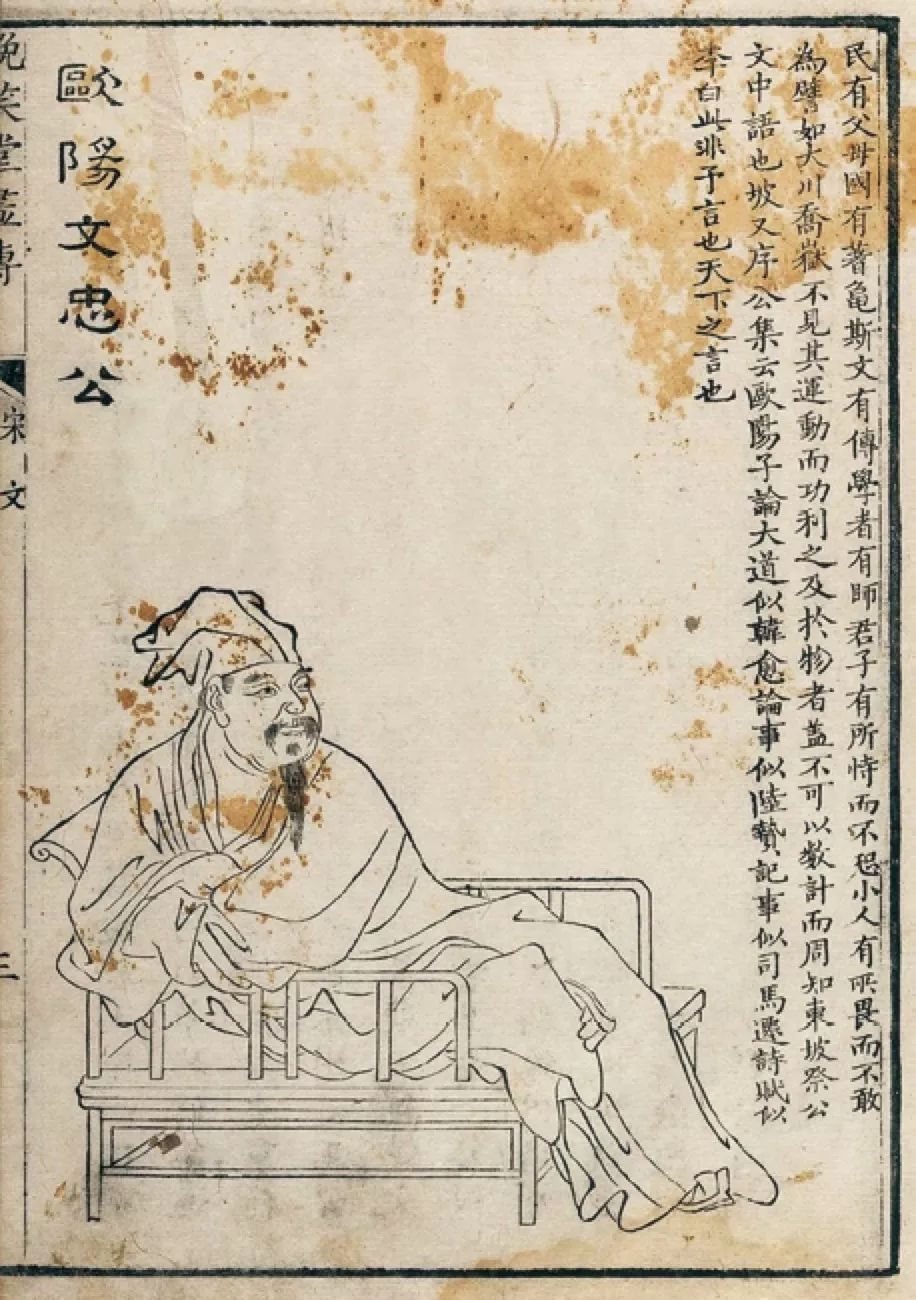 民有父母國有蓍龜斯文有傳學者有師君子有所恃而不恐小人有所畏而不敢
為譬如大川喬嶽不見其運動而功利之及於物者蓋不可以數計而周知東坡祭公
文中語也坡又序公集云歐陽子論大道似韓愈論事似陸贄記事似司馬遷詩賦似
李白此非予言也天下之言也
歐陽文忠公
晚笑堂畫傳
宋文
三